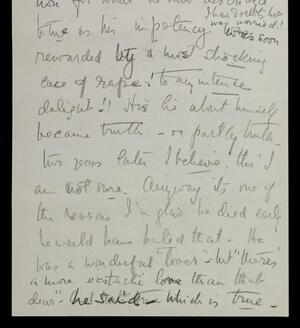 I had doubts how
was worried!
true as his impotency was soon
rewarded by a most shocking
case of rape! to my intense
delight!! His lie about himself
became truth - or partly truth
two years later I believe, tho' I
am not sure. Anyway its one of
the reasons I'm glad he died early
he would have hated that - He
was a wonderful "lover" - but "there's
a more ecstatic love than that
dear" - he said - which is true -